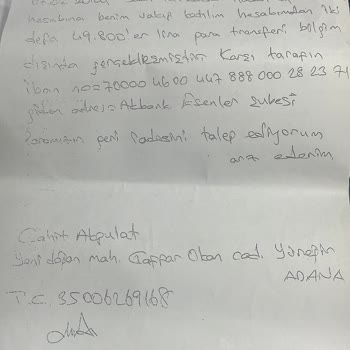 hesabına benim vakıf katılım hesabımdan iki
defa 49.800'er lira para transferi bilgim
dışında gerçekleşmiştir. Karşı tarafın
iban no=70000 4600 447 888 000 28 23 71
giden adres= Akbank Esenler Şubesi
Paramızın geri iadesini talep ediyorum
arz ederim
Cahit Akpulat
Yeni doğan mah. Çappar Oban cad. Yüreğir
ADANA
T.C. 35006269168